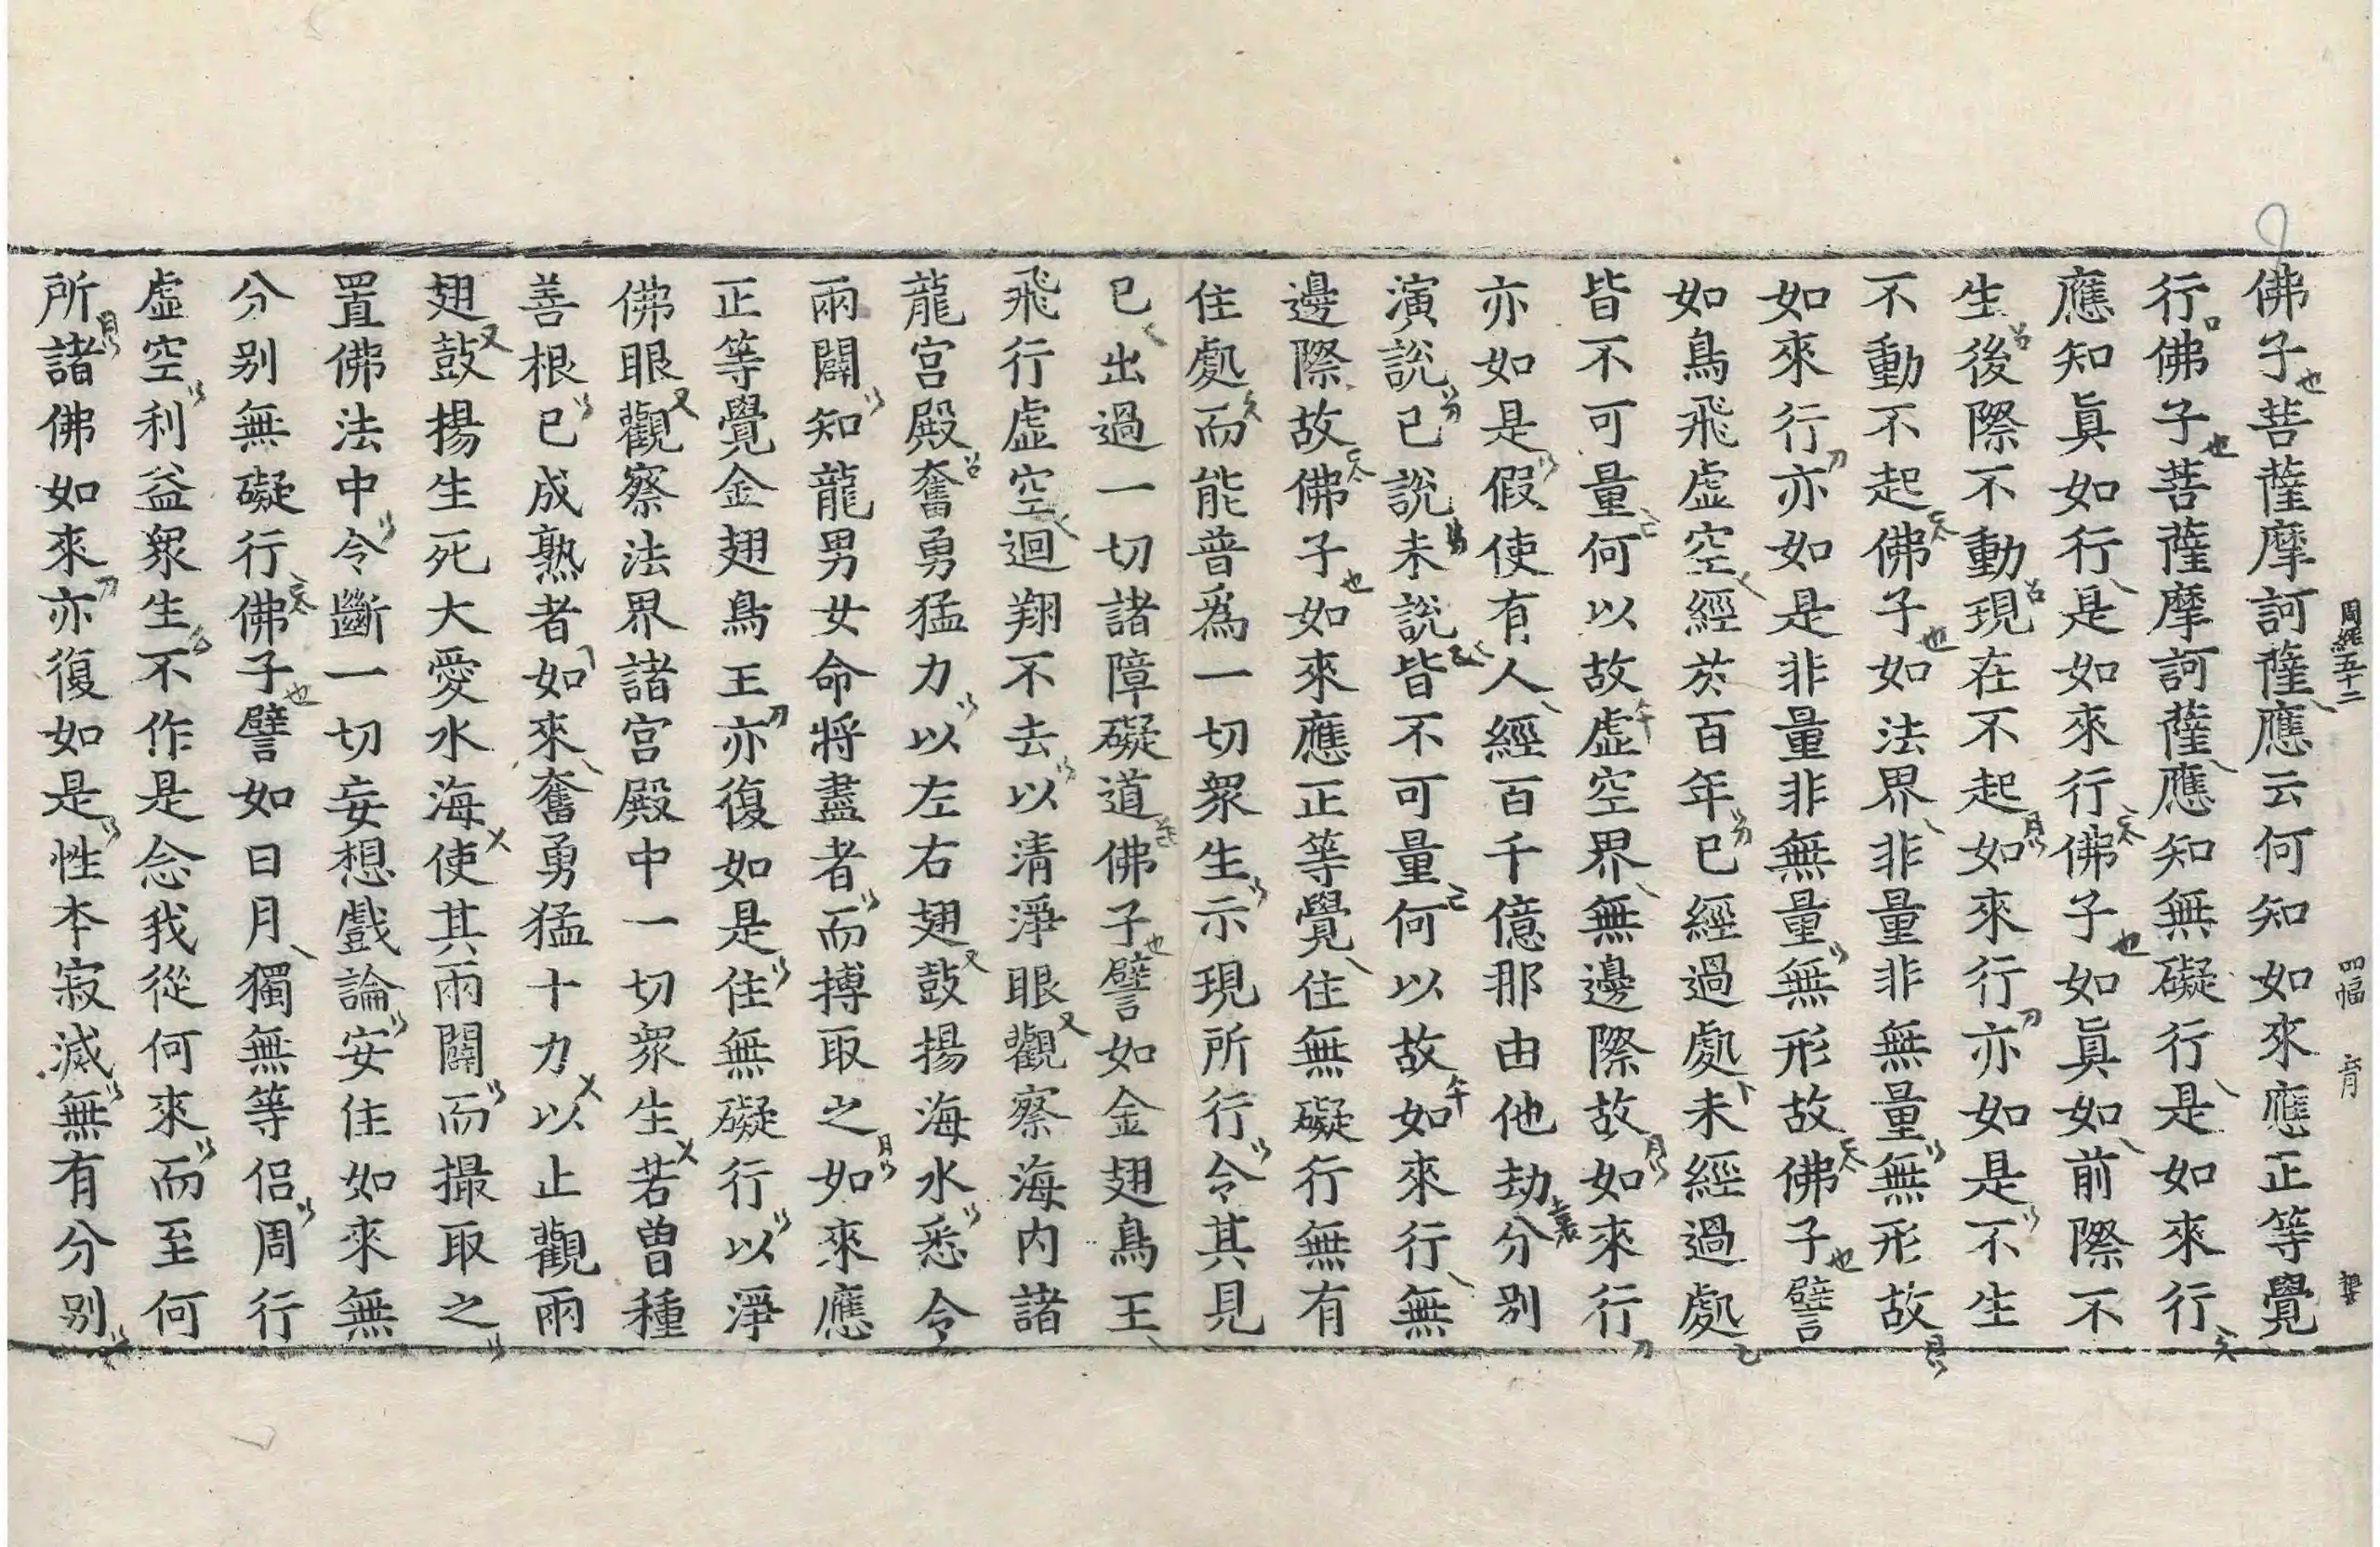 周經五十二 四幅
佛子菩薩摩訶薩應云何知如來應正等覺
行佛子菩薩摩訶薩應知無礙行是如來行
應知眞如行是如來行佛子如眞如前際不
生後際不動現在不起如來行亦如是不生
不動不起佛子如法界非量非無量無形故
如來行亦如是非量非無量無形故佛子譬
如鳥飛虛空經於百年已經過處未經過處
皆不可量何以故虛空界無邊際故如來行
亦如是假使有人經百千億那由他劫分別
演說已說未說皆不可量何以故如來行無
邊際故佛子如來應正等覺住無礙行無有
住處而能普爲一切衆生示現所行令其見
已出過一切諸障礙道佛子譬如金翅鳥王
飛行虛空迴翔不去以淸淨眼觀察海內諸
龍宮殿奮勇猛力以左右翅鼓揚海水悉令
兩闢知龍男女命將盡者而搏取之如來應
正等覺金翅鳥王亦復如是住無礙行以淨
佛眼觀察法界諸宮殿中一切衆生若曾種
善根已成熟者如來奮勇猛十力以止觀兩
翅鼓揚生死大愛水海使其兩闢而撮取之
置佛法中令斷一切妄想戲論安住如來無
分別無礙行佛子譬如日月獨無等侶周行
虛空利益衆生不作是念我從何來而至何
所諸佛如來亦復如是性本寂滅無有分別